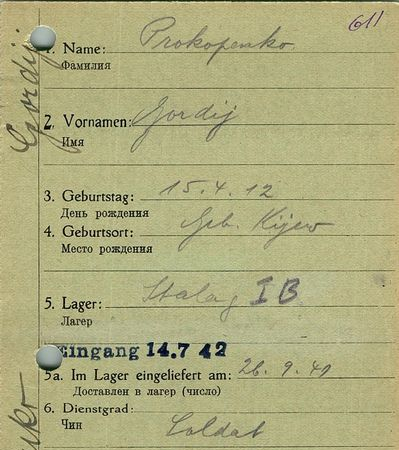 611
1. Name: Prokopenko
Фамилия
2. Vornamen: Gordij
Имя
3. Geburtstag: 15.4.12
День рождения
4. Geburtsort: Geb. Kijew
Место рождения
5. Lager: Stalag IB
Лагер
Eingang 14.7 42
5a. Im Lager eingeliefert am: 26.9.41
Доставлен в лагер (число)
6. Dienstgrad: Soldat
Чин
Gordij